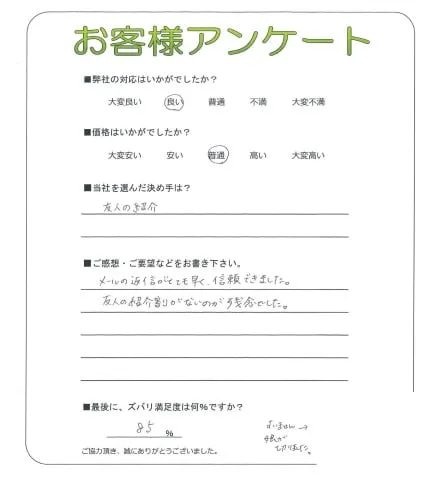 お客様アンケート
■弊社の対応はいかがでしたか？
大変良い 良い 普通 不満 大変不満
■価格はいかがでしたか？
大変安い 安い 普通 高い 大変高い
■当社を選んだ決め手は？
友人の紹介
■ご感想・ご要望などをお書き下さい。
メールの返信がとても早く、信頼できました。
友人の紹介割りがないのが残念でした。
■最後に、ズバリ満足度は何%ですか？
85 %
すいません→
端が
切れました。
ご協力頂き、誠にありがとうございました。